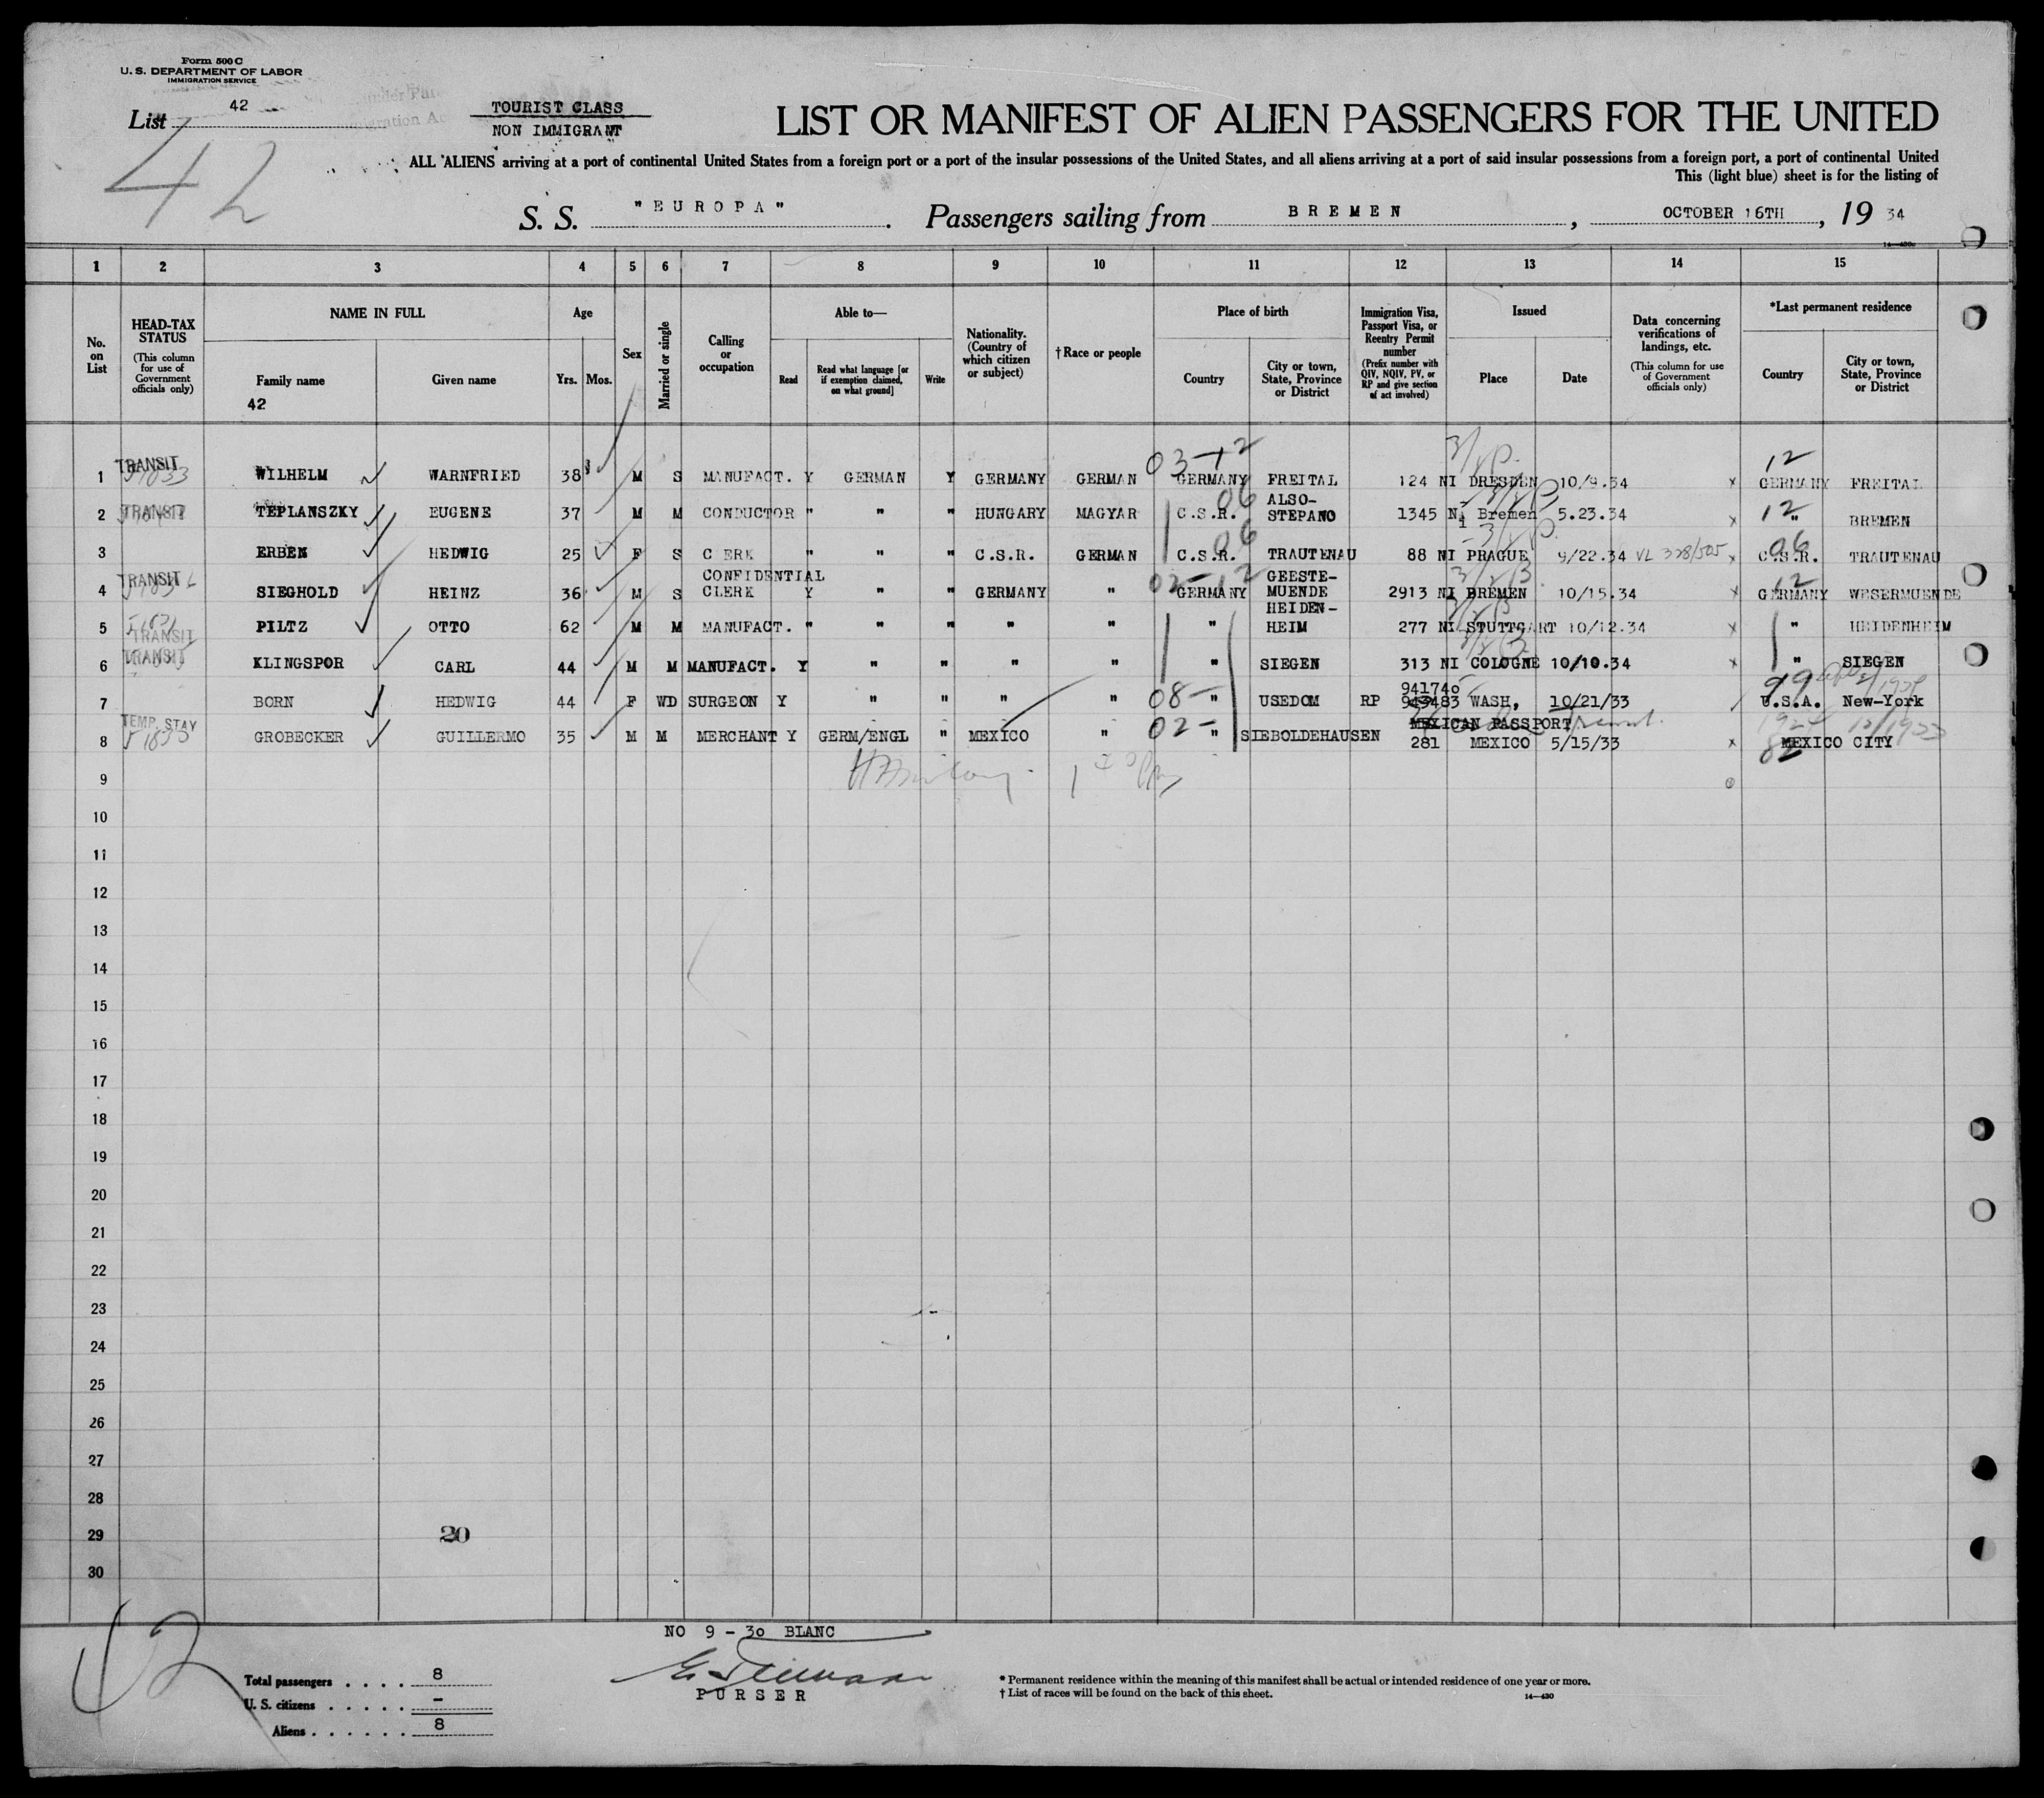 Form 500 C
U. S. DEPARTMENT OF LABOR
IMMIGRATION SERVICE
List 42
42
TOURIST CLASS
NON IMMIGRANT
LIST OR MANIFEST OF ALIEN PASSENGERS FOR THE UNITED
ALL ALIENS arriving at a port of continental United States from a foreign port or a port of the insular possessions of the United States, and all aliens arriving at a port of said insular possessions from a foreign port, a port of continental United
This (light blue) sheet is for the listing of
S. S. "EUROPA". Passengers sailing from BREMEN, OCTOBER 16TH, 19 34
14—430c
1 2 3 4 5 6 7 8 9 10 11 12 13 14 15
No. on List
HEAD-TAX STATUS (This column for use of Government officials only)
NAME IN FULL
Family name
42
Given name
Age
Yrs. Mos.
Sex
Married or single
Calling or occupation
Able to—
Read
Read what language [or if exemption claimed, on what ground]
Write
Nationality. (Country of which citizen or subject)
†Race or people
Place of birth
Country
City or town, State, Province or District
Immigration Visa, Passport Visa, or Reentry Permit number (Prefix number with QIV, NQIV, PV, or RP and give section of act involved)
Issued
Place
Date
Data concerning verifications of landings, etc. (This column for use of Government officials only)
*Last permanent residence
Country
City or town, State, Province or District
03-12 12
1 TRANSIT WILHELM WARNFRIED 38 M S MANUFACT. Y GERMAN Y GERMANY GERMAN GERMANY FREITAL 124 NI DRESDEN 10/9.34 x GERMANY FREITAL
06 12
2 TRANSIT TEPLANSZKY EUGENE 37 M M CONDUCTOR " " " HUNGARY MAGYAR C.S.R. ALSO-STEPANO 1345 Ni Bremen 5.23.34 x " BREMEN
06 06
3 ERBEN HEDWIG 25 F S C ERK " " " C.S.R. GERMAN C.S.R. TRAUTENAU 88 NI PRAGUE 9/22.34 VL 328/505 x C.S.R. TRAUTENAU
02-12 12
4 TRANSIT SIEGHOLD HEINZ 36 M S CONFIDENTIAL CLERK Y " " GERMANY " GERMANY GEESTE-MUENDE 2913 NI BREMEN 10/15.34 x GERMANY WESERMUENDE
5 TRANSIT PILTZ OTTO 62 M M MANUFACT. " " " " " " HEIDEN-HEIM 277 NI STUTTGART 10/12.34 x " HEIDENHEIM
6 TRANSIT KLINGSPOR CARL 44 M M MANUFACT. Y " " " " " SIEGEN 313 NI COLOGNE 10/10.34 x " SIEGEN
08- 941740 99
7 BORN HEDWIG 44 F WD SURGEON Y " " " " " USEDOM RP 943483 WASH, 10/21/33 U.S.A. New-York
02- MEXICAN PASSPORT
8 TEMP. STAY GROBECKER GUILLERMO 35 M M MERCHANT Y GERM/ENGL " MEXICO " " SIEBOLDEHAUSEN 281 MEXICO 5/15/33 x MEXICO CITY
82
9
10
11
12
13
14
15
16
17
18
19
20
21
22
23
24
25
26
27
28
29
20
30
42
NO 9 - 30 BLANC
PURSER
Total passengers . . . . 8
U. S. citizens . . . . . –
Aliens . . . . . . 8
* Permanent residence within the meaning of this manifest shall be actual or intended residence of one year or more.
† List of races will be found on the back of this sheet.
14—430